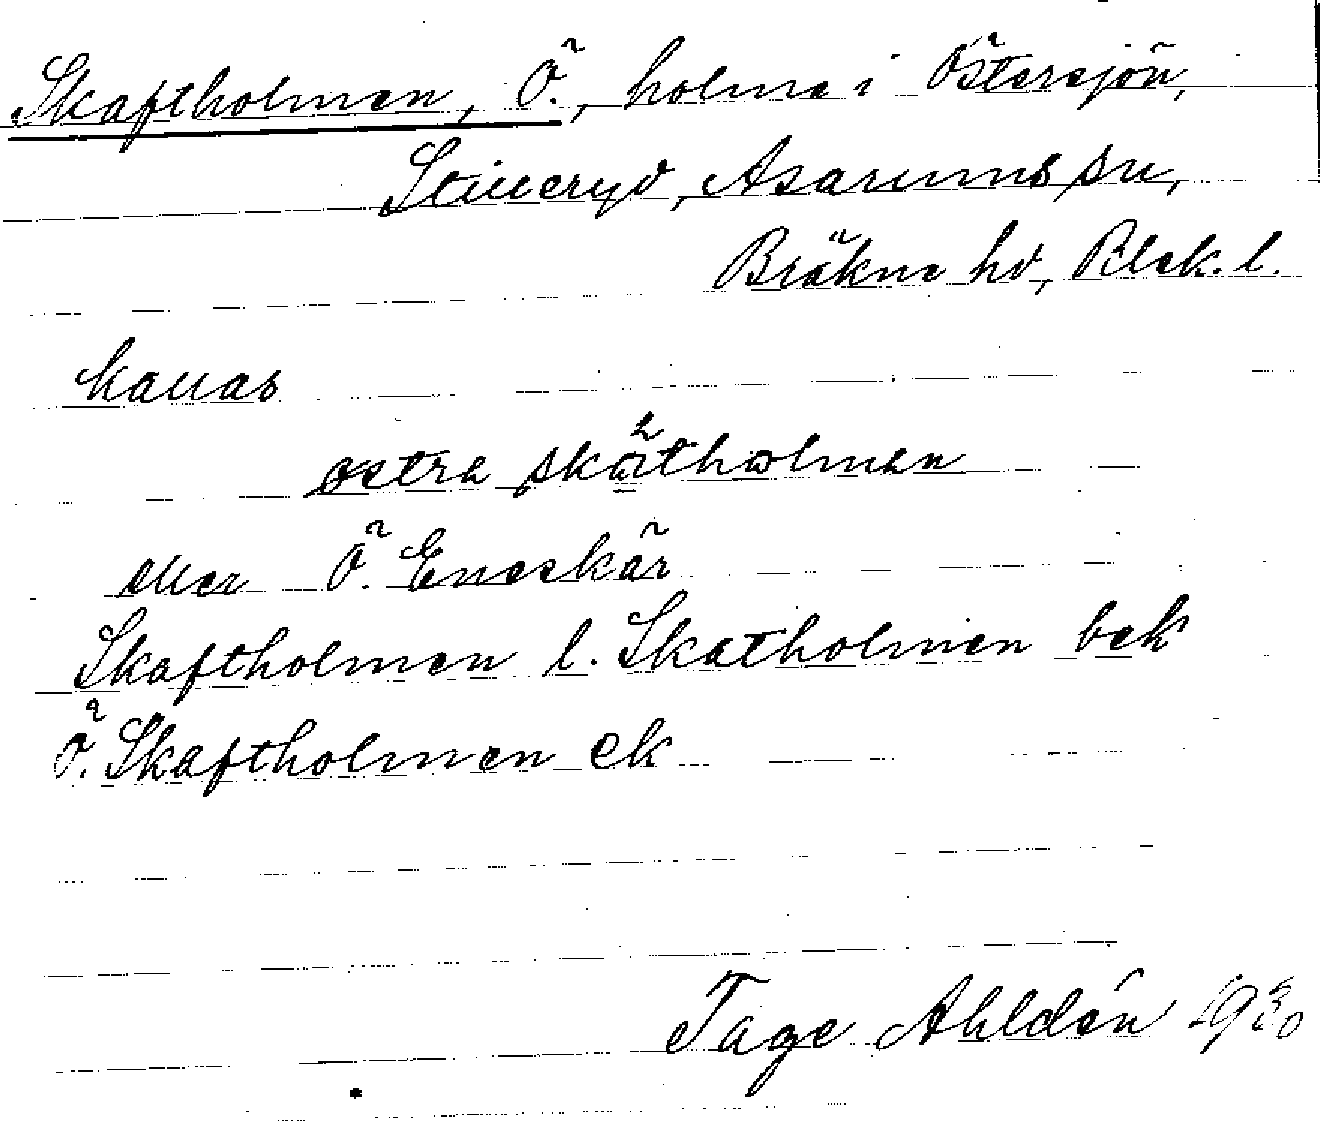 Skaftholmen, Ö., holme i Östersjön,
Stilleryd, Asarums sn,
Bräkne hd, Blek. l.
kallas
östra skätholmen
eller Ö. Eneskär
Skaftholmen l. Skatholmen bek
Ö. Skaftholmen ek
Tage Ahldén 1930